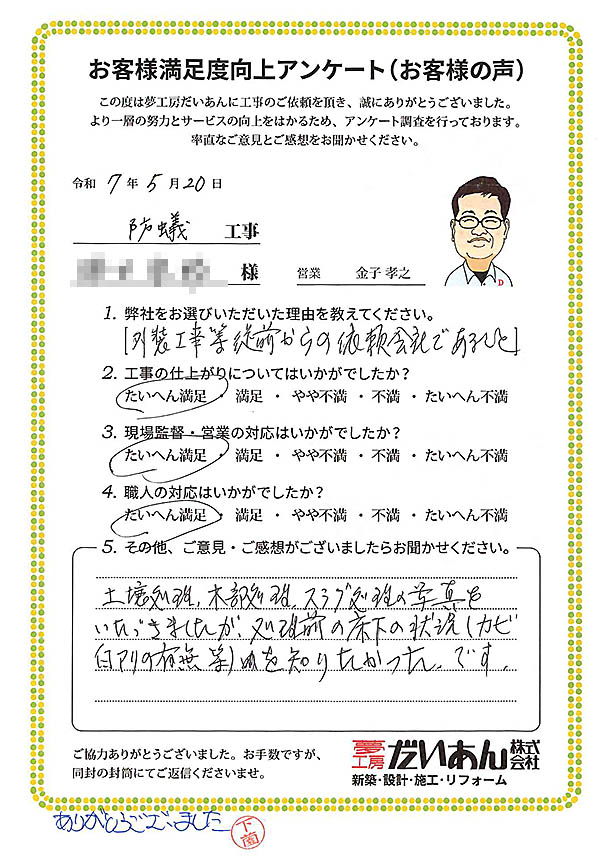 お客様満足度向上アンケート(お客様の声)
この度は夢工房だいあんに工事のご依頼を頂き、誠にありがとうございました。
より一層の努力とサービスの向上をはかるため、アンケート調査を行っております。
率直なご意見とご感想をお聞かせください。
令和 7 年 5 月 20 日
防蟻 工事
様 営業 金子 孝之
D
1. 弊社をお選びいただいた理由を教えてください。
[外装工事等従前からの依頼会社であること]
2. 工事の仕上がりについてはいかがでしたか?
たいへん満足 ・ 満足 ・ やや不満 ・ 不満 ・ たいへん不満
3. 現場監督・営業の対応はいかがでしたか?
たいへん満足 ・ 満足 ・ やや不満 ・ 不満 ・ たいへん不満
4. 職人の対応はいかがでしたか?
たいへん満足 ・ 満足 ・ やや不満 ・ 不満 ・ たいへん不満
5. その他、ご意見・ご感想がございましたらお聞かせください。
土壌処理、木部処理、スラブ処理の写真を
いただきましたが 処理前の床下の状況(カビ
白アリの有無 等)を知りたかった。です。
ご協力ありがとうございました。お手数ですが、
同封の封筒にてご返信くださいませ。
夢工房 だいあん 株式会社
新築・設計・施工・リフォーム
ありがとうございました 下薗